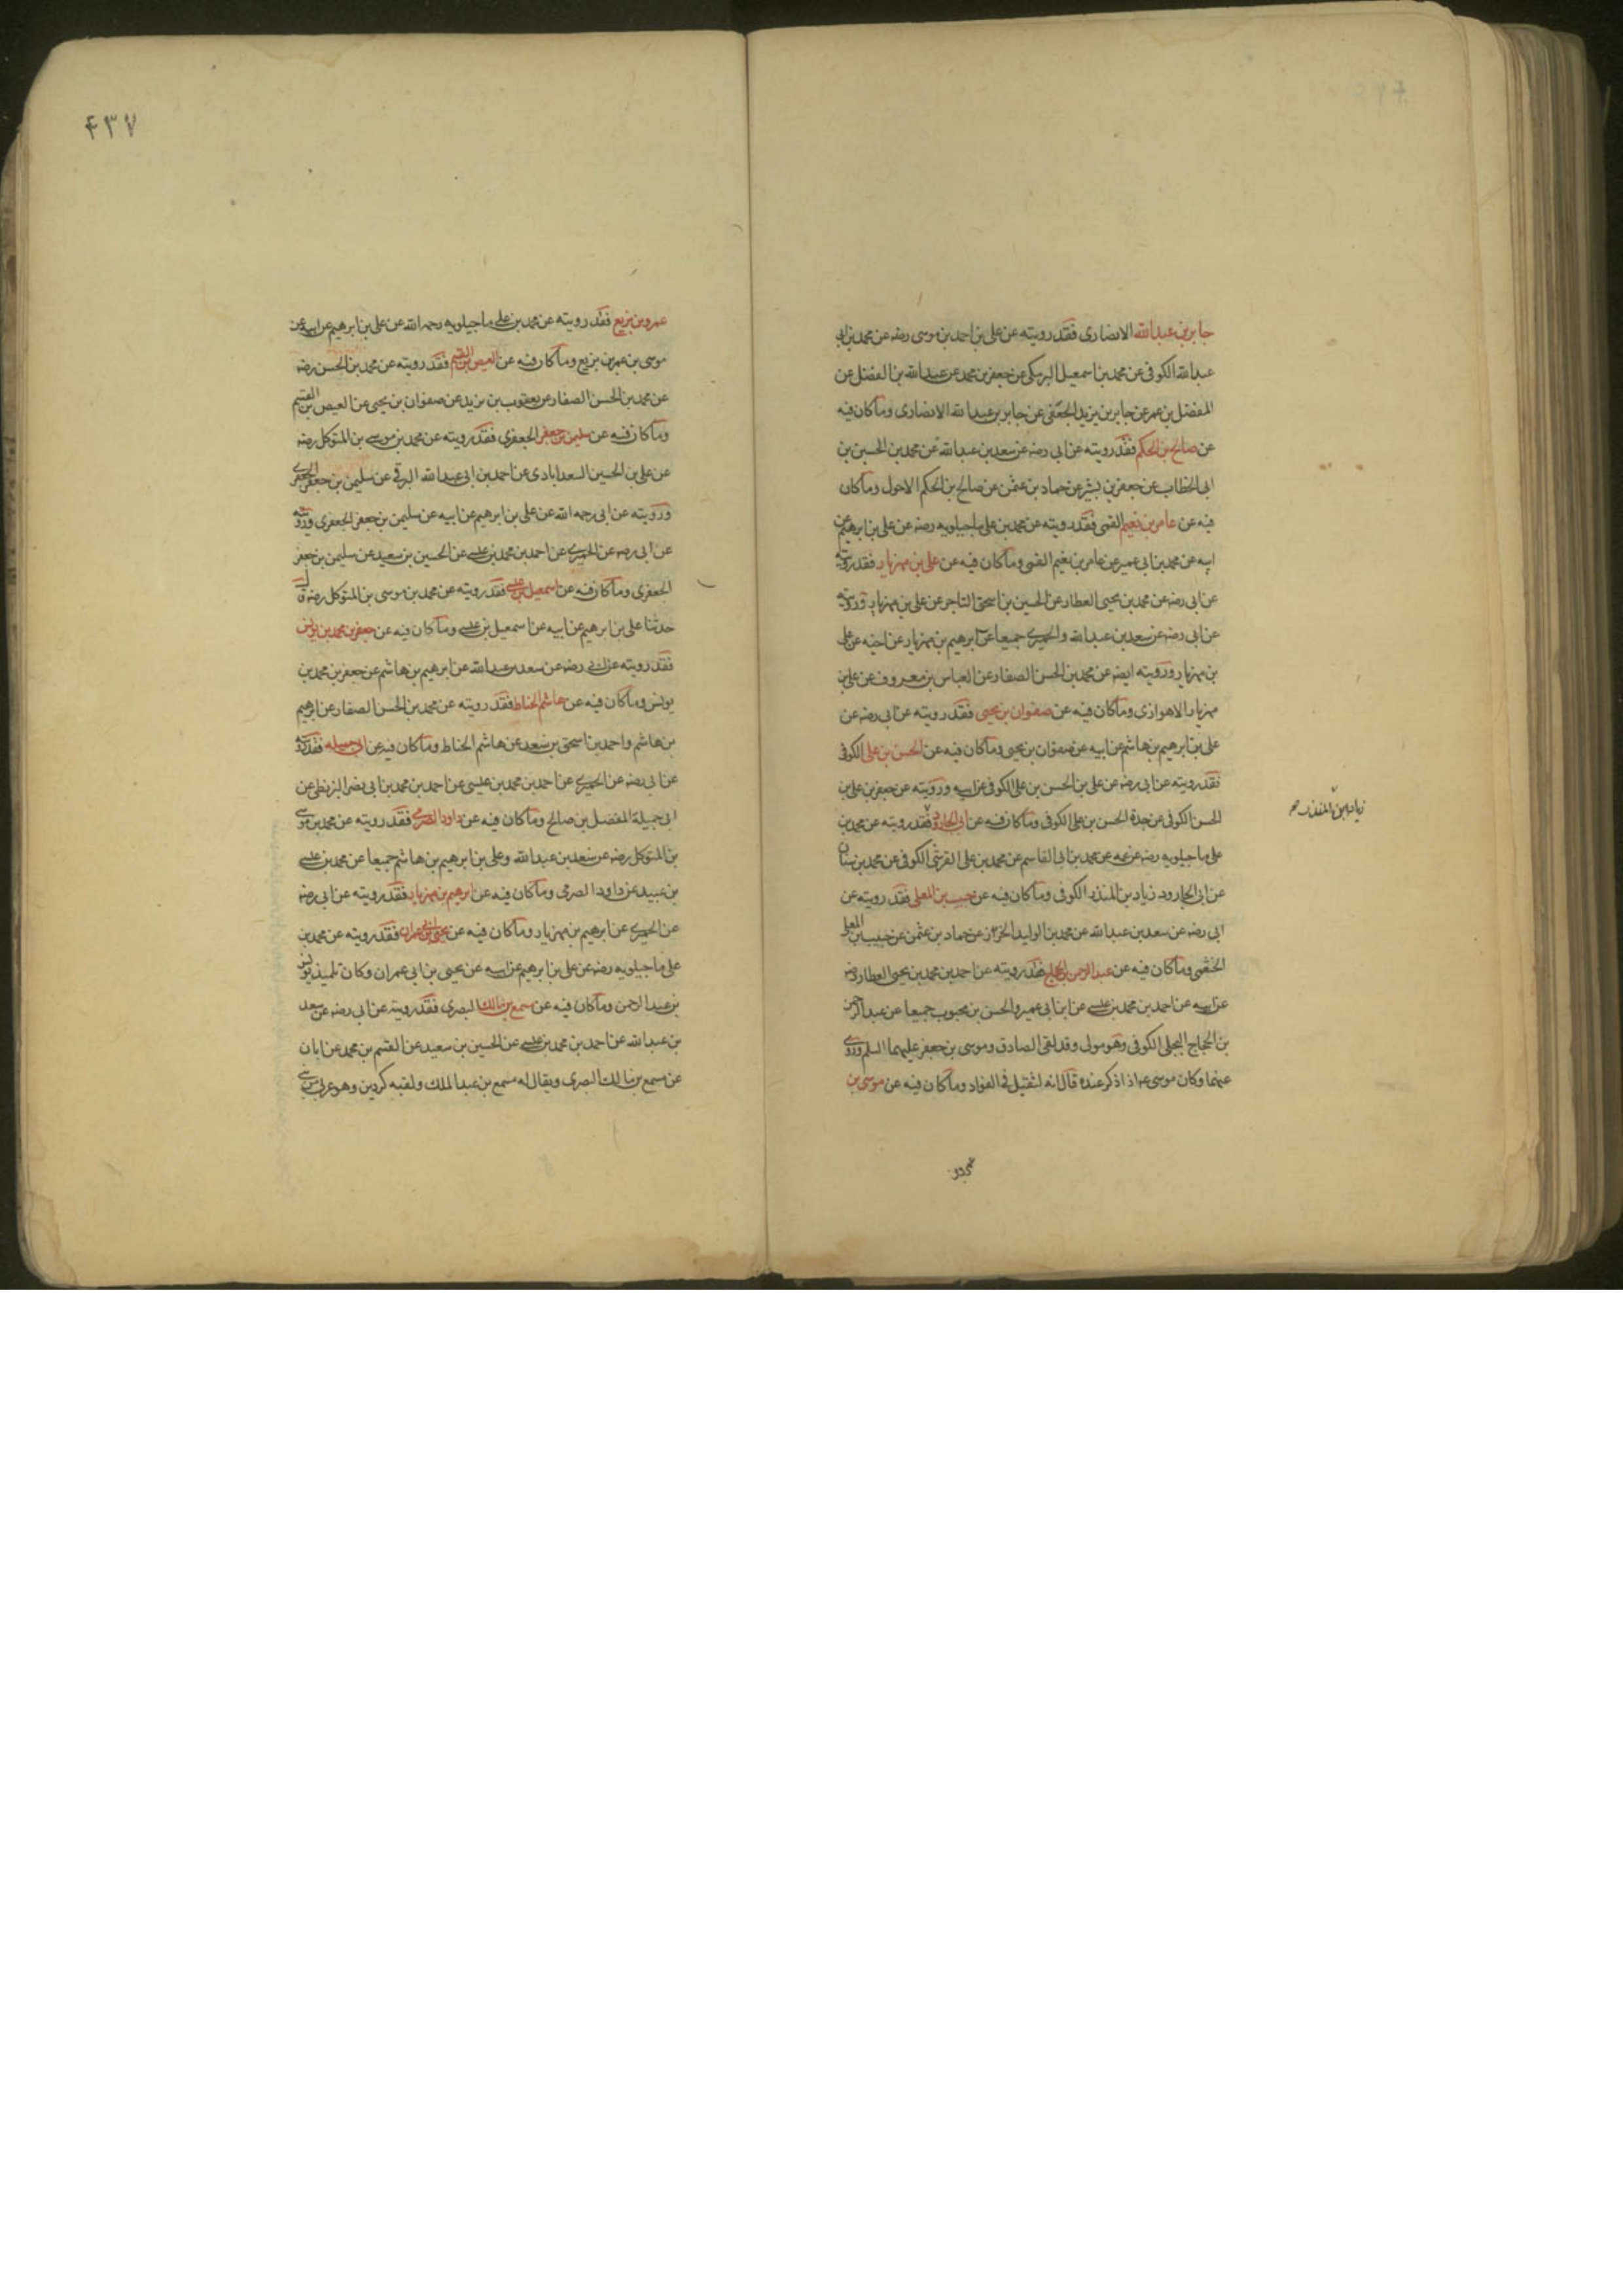 جابر بن عبد الله الانصاری فقد رویته عن علی بن احمد بن موسی رضه عن محمد بن ابی
عبد الله الکوفی عن محمد بن اسمعیل البرمکی عن جعفر بن محمد عن عبد الله بن الفضل عن
المفضل بن عمر عن جابر بن یزید الجعفی عن جابر بن عبد الله الانصاری وما کان فیه
عن صالح بن الحکم فقد رویته عن ابی رضه عن سعد بن عبد الله عن محمد بن الحسین بن
ابی الخطاب عن جعفر بن بشیر عن حماد بن عثمن عن صالح بن الحکم الاحول وما کان
فیه عن عامر بن نعیم القمی فقد رویته عن محمد بن علی ماجیلویه رضه عن علی بن ابرهیم عن
ابیه عن محمد بن ابی عمیر عن عامر بن نعیم القمی وما کان فیه عن علی بن مهزیار فقد رویته
عن ابی رضه عن محمد بن یحیی العطار عن الحسین بن اسحق التاجر عن علی بن مهزیار ورویته
عن ابی رضه عن سعد بن عبد الله والحمیری جمیعا عن ابرهیم بن مهزیار عن اخیه علی
بن مهزیار ورویته ایضه عن محمد بن الحسن الصفار عن العباس بن معروف عن علی بن
مهزیار الاهوازی وما کان فیه عن صفوان بن یحیی فقد رویته عن ابی رضه عن
علی بن ابرهیم بن هاشم عن ابیه عن صفوان بن یحیی وما کان فیه عن الحسن بن علی الکوفی
فقد رویته عن ابی رضه عن علی بن الحسن بن علی الکوفی عن ابیه ورویته عن جعفر بن علی بن
الحسن الکوفی عن جده الحسن بن علی الکوفی وما کان فیه عن ابی الجارود فقد رویته عن محمد بن
زیاد بن المنذر صح
علی ماجیلویه رضه عن عمه عن محمد بن ابی القاسم عن محمد بن علی القرشی الکوفی عن محمد بن سنان
عن ابی الجارود زیاد بن المنذر الکوفی وما کان فیه عن حبیب بن المعلی فقد رویته عن
ابی رضه عن سعد بن عبد الله عن محمد بن الولید الخزاز عن حماد بن عثمن عن حبیب بن المعلی
الخثعمی وما کان فیه عن عبد الرحمن بن الحجاج فقد رویته عن احمد بن محمد بن یحیی العطار رضه
عن ابیه عن احمد بن محمد بن عیسی عن ابن ابی عمیر والحسن بن محبوب جمیعا عن عبد الرحمن
بن الحجاج البجلی الکوفی وهو مولی وقد لقی الصادق وموسی بن جعفر علیهما السلم وروی
عنهما وکان موسی ع اذا ذکر عنده قال انه لثقیل فی الفؤاد وما کان فیه عن موسی بن
عمرو بن
۴۳۷
عمرو بن بزیع فقد رویته عن محمد بن علی ماجیلویه رحمه الله عن علی بن ابرهیم عن ابیه عن
موسی بن عمر بن بزیع وما کان فیه عن العیص بن القسم فقد رویته عن محمد بن الحسن رضه
عن محمد بن الحسن الصفار عن یعقوب بن یزید عن صفوان بن یحیی عن العیص بن القسم
وما کان فیه عن سلیمن بن جعفر الجعفری فقد رویته عن محمد بن موسی بن المتوکل رضه
عن علی بن الحسین السعدابادی عن احمد بن ابی عبد الله البرقی عن سلیمن بن جعفر الجعفری
ورویته عن ابی رحمه الله عن علی بن ابرهیم عن ابیه عن سلیمن بن جعفر الجعفری ورویته
عن ابی رضه عن الحمیری عن احمد بن محمد بن عیسی عن الحسین بن سعید عن سلیمن بن جعفر
الجعفری وما کان فیه عن اسمعیل بن عیسی فقد رویته عن محمد بن موسی بن المتوکل رضه قال
حدثنا علی بن ابرهیم عن ابیه عن اسمعیل بن عیسی وما کان فیه عن جعفر بن محمد بن یونس
فقد رویته عن ابی رضه عن سعد بن عبد الله عن ابرهیم بن هاشم عن جعفر بن محمد بن
یونس وما کان فیه عن هاشم الحناط فقد رویته عن محمد بن الحسن الصفار عن ابرهیم
بن هاشم واحمد بن اسحق بن سعد عن هاشم الحناط وما کان فیه عن ابی جمیله فقد رویته
عن ابی رضه عن الحمیری عن احمد بن محمد بن عیسی عن احمد بن محمد بن ابی نصر البزنطی عن
ابی جمیلة المفضل بن صالح وما کان فیه عن داود الصرمی فقد رویته عن محمد بن موسی
بن المتوکل رضه عن سعد بن عبد الله وعلی بن ابرهیم بن هاشم جمیعا عن محمد بن عیسی
بن عبید عن داود الصرمی وما کان فیه عن ابرهیم بن مهزیار فقد رویته عن ابی رضه
عن الحمیری عن ابرهیم بن مهزیار وما کان فیه عن یحیی بن ابی عمران فقد رویته عن محمد بن
علی ماجیلویه رضه عن علی بن ابرهیم عن ابیه عن یحیی بن ابی عمران وکان تلمیذ یونس
بن عبد الرحمن وما کان فیه عن مسمع بن مالک البصری فقد رویته عن ابی رضه عن سعد
بن عبد الله عن احمد بن محمد بن عیسی عن الحسین بن سعید عن القسم بن محمد عن ابان
عن مسمع بن مالک البصری ویقال له مسمع بن عبد الملک ولقبه کردین وهو عربی من بنی